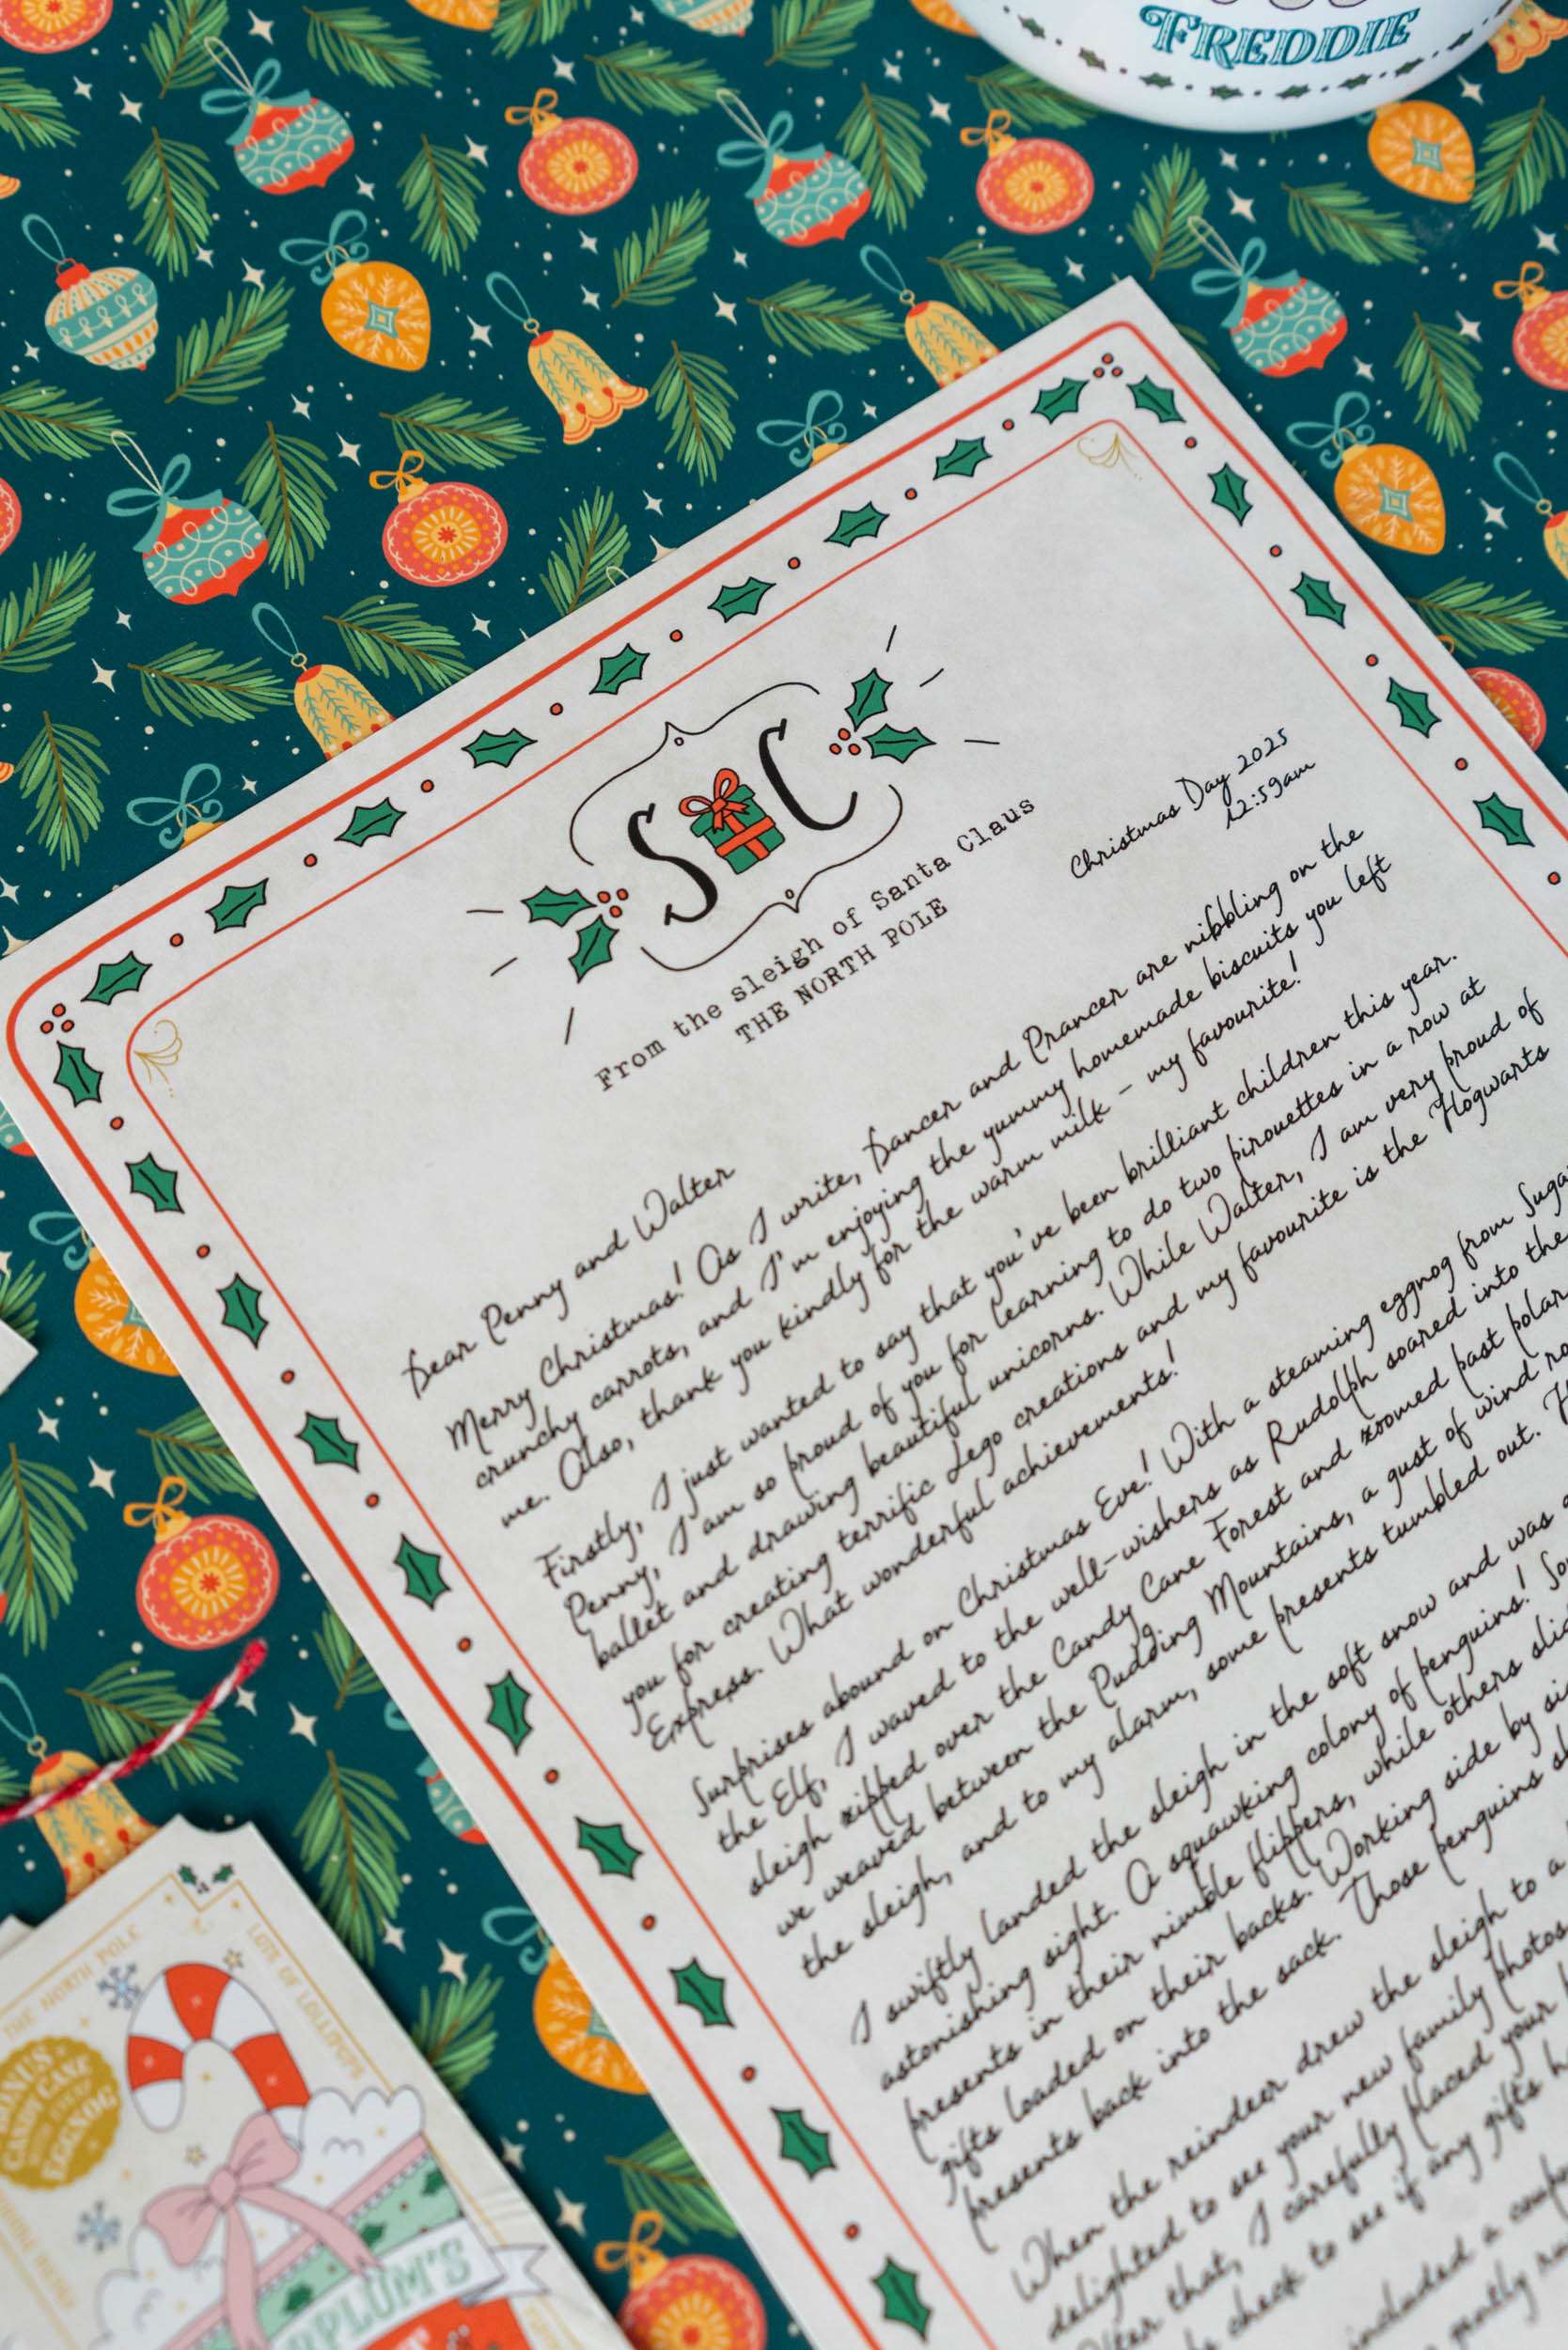 FREDDIE
S C
From the sleigh of Santa Claus
THE NORTH POLE
Christmas Day 2025
12:59am
Dear Penny and Walter
Merry Christmas! As I write, Dancer and Prancer are nibbling on the
crunchy carrots, and I'm enjoying the yummy homemade biscuits you left
me. Also, thank you kindly for the warm milk - my favourite!
Firstly, I just wanted to say that you've been brilliant children this year.
Penny, I am so proud of you for learning to do two pirouettes in a row at
ballet and drawing beautiful unicorns. While Walter, I am very proud of
you for creating terrific Lego creations and my favourite is the Hogwarts
Express. What wonderful achievements!
Surprises abound on Christmas Eve! With a steaming eggnog from
the Elf, I waved to the well-wishers as Rudolph soared into the
sleigh zipped over the Candy Cane Forest and zoomed past polar
we weaved between the Pudding Mountains, a gust of wind
the sleigh, and to my alarm, some presents tumbled out.
I swiftly landed the sleigh in the soft snow and was
astonishing sight. A squawking colony of penguins!
presents in their nimble flippers, while others
gifts loaded on their backs. Working side by
presents back into the sack. Those penguins
When the reindeer drew the sleigh to a
delighted to see your new family photos
that, I carefully placed your
check to see if any gifts
included a
gently
THE NORTH POLE
LOTS OF LOLLIPOPS
BONUS
CANDY CANE
WITH EVERY
EGGNOG